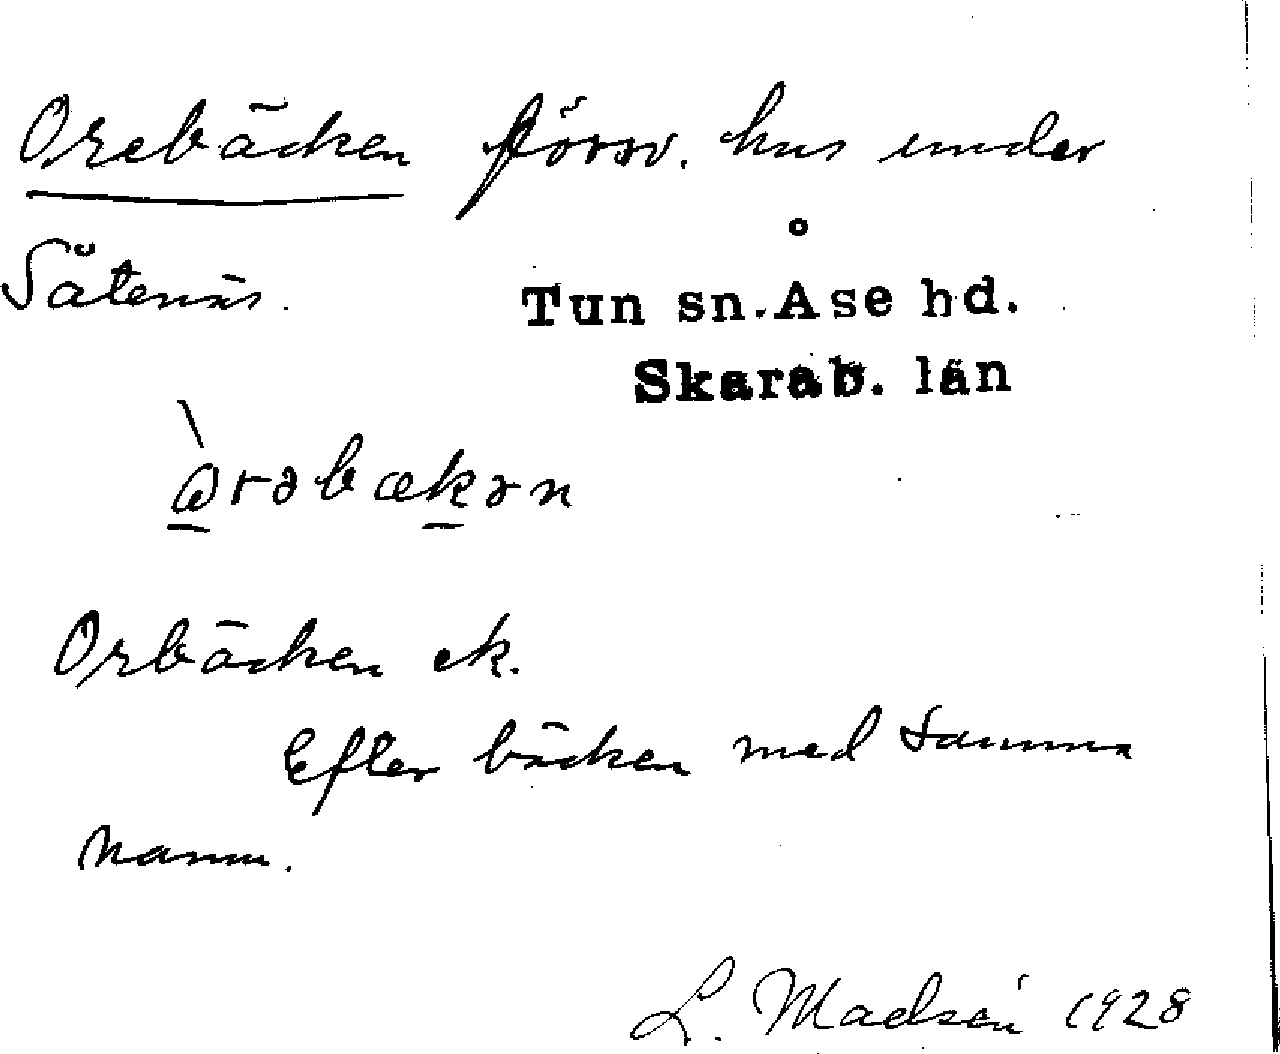 Orebäcken försv. hus under
Såtenäs.
Tun sn. Åse hd.
Skarab. län
òrəbækən
Orbäcken ek.
Efter bäcken med samma
namn.
L. Madsén 1928